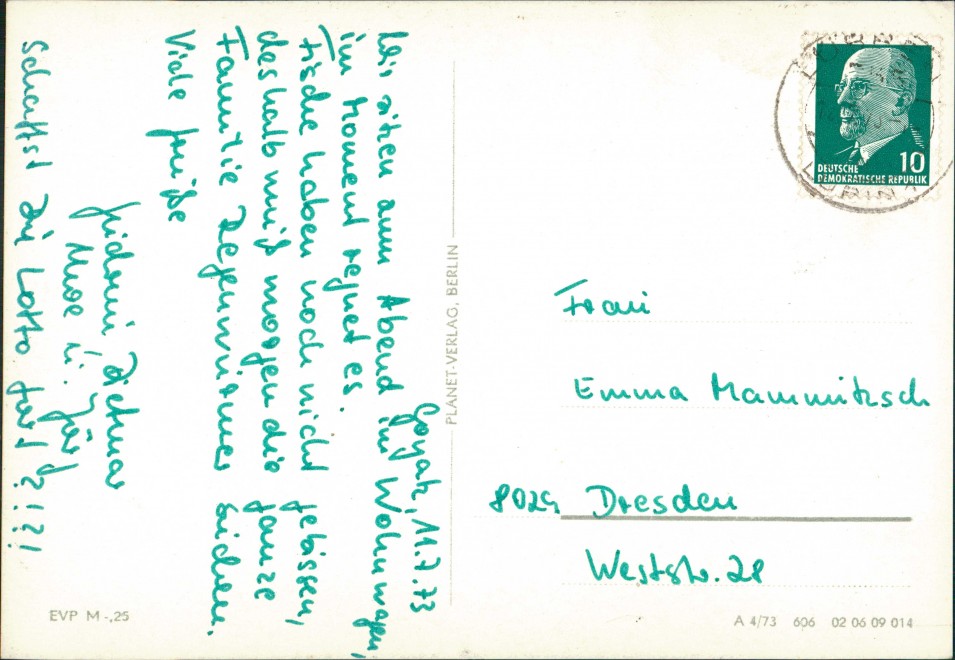 Goyatz, 11.7.73
Wir sitzen zum Abend im Wohnwagen,
im Moment regnet es.
Fische haben noch nicht gebissen,
deshalb muß morgen die ganze
Familie Regenwürmer suchen.
Viele Grüße
Dietmar
u.
Schaffst Du Lotto fort ?!?!
PLANET-VERLAG, BERLIN
DEUTSCHE
DEMOKRATISCHE REPUBLIK
10
LÜBBEN
Frau
Emma Mammitzsch
8029 Dresden
Weststr. 28
EVP M -,25
A 4/73 606 02 06 09 014